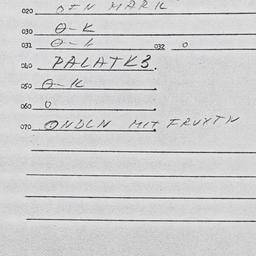 020 DEN MARK
030 O-K
031 O-K 032 0
040 PALATKB.
050 O-K
060 0
070 ONDLN MIT FRUXTN